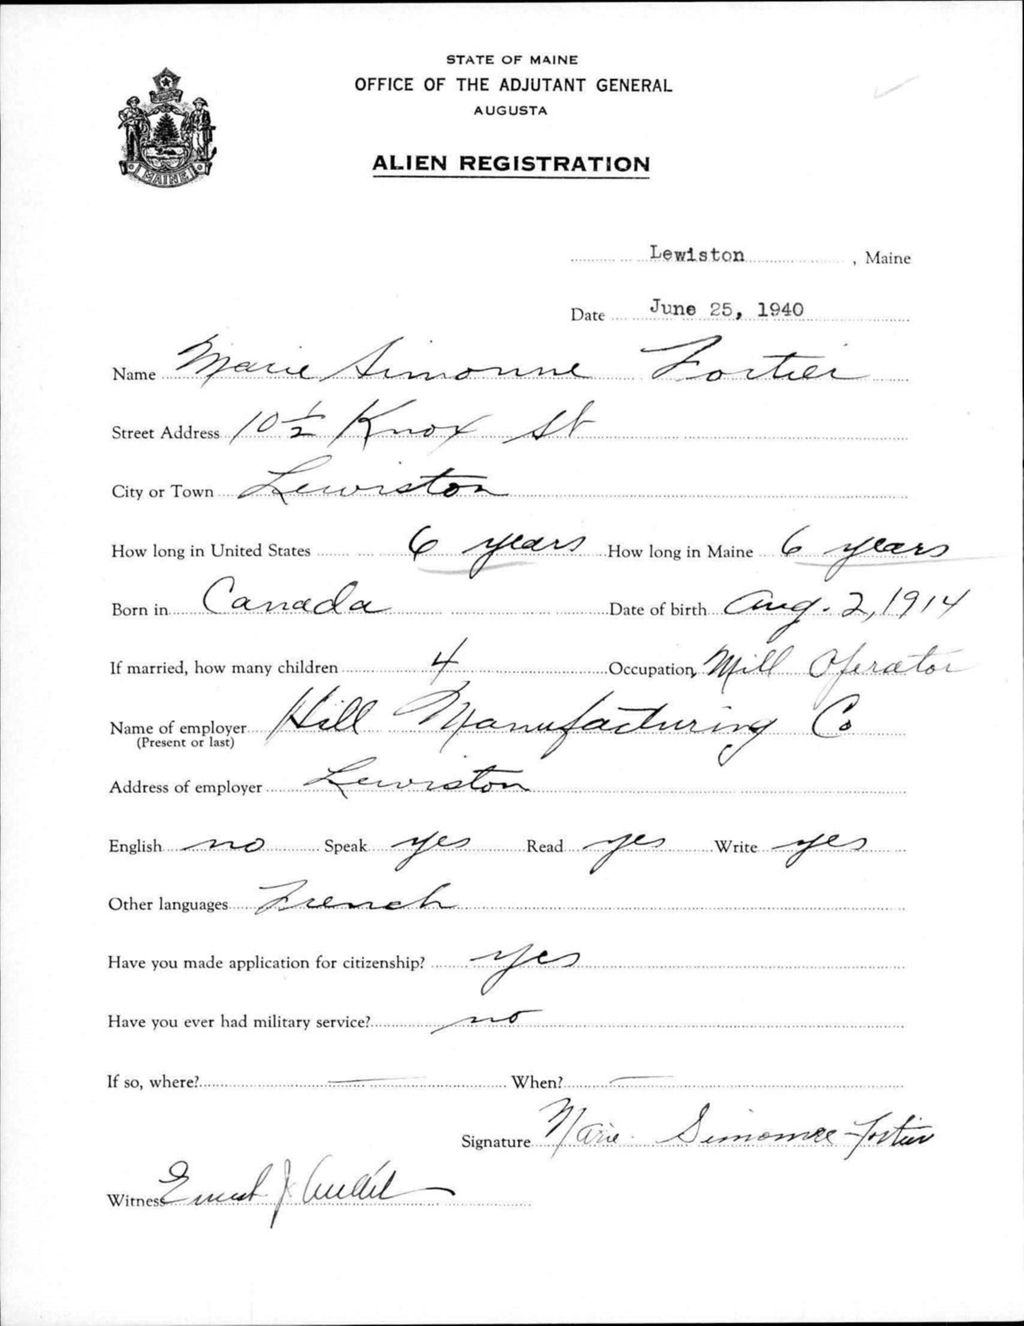 STATE OF MAINE
OFFICE OF THE ADJUTANT GENERAL
AUGUSTA
ALIEN REGISTRATION
MAINE
Lewiston, Maine
Date June 25, 1940
Name Marie Simonne Fortier
Street Address 10 1/2 Knox St
City or Town Lewiston
How long in United States 6 years How long in Maine 6 years
Born in Canada Date of birth Aug. 2, 1914
If married, how many children 4 Occupation Mill Operator
Name of employer Hill Manufacturing Co
(Present or last)
Address of employer Lewiston
English no Speak yes Read yes Write yes
Other languages French
Have you made application for citizenship? yes
Have you ever had military service? no
If so, where? — When? —
Signature Marie Simonne Fortier
Witness Ernest J.